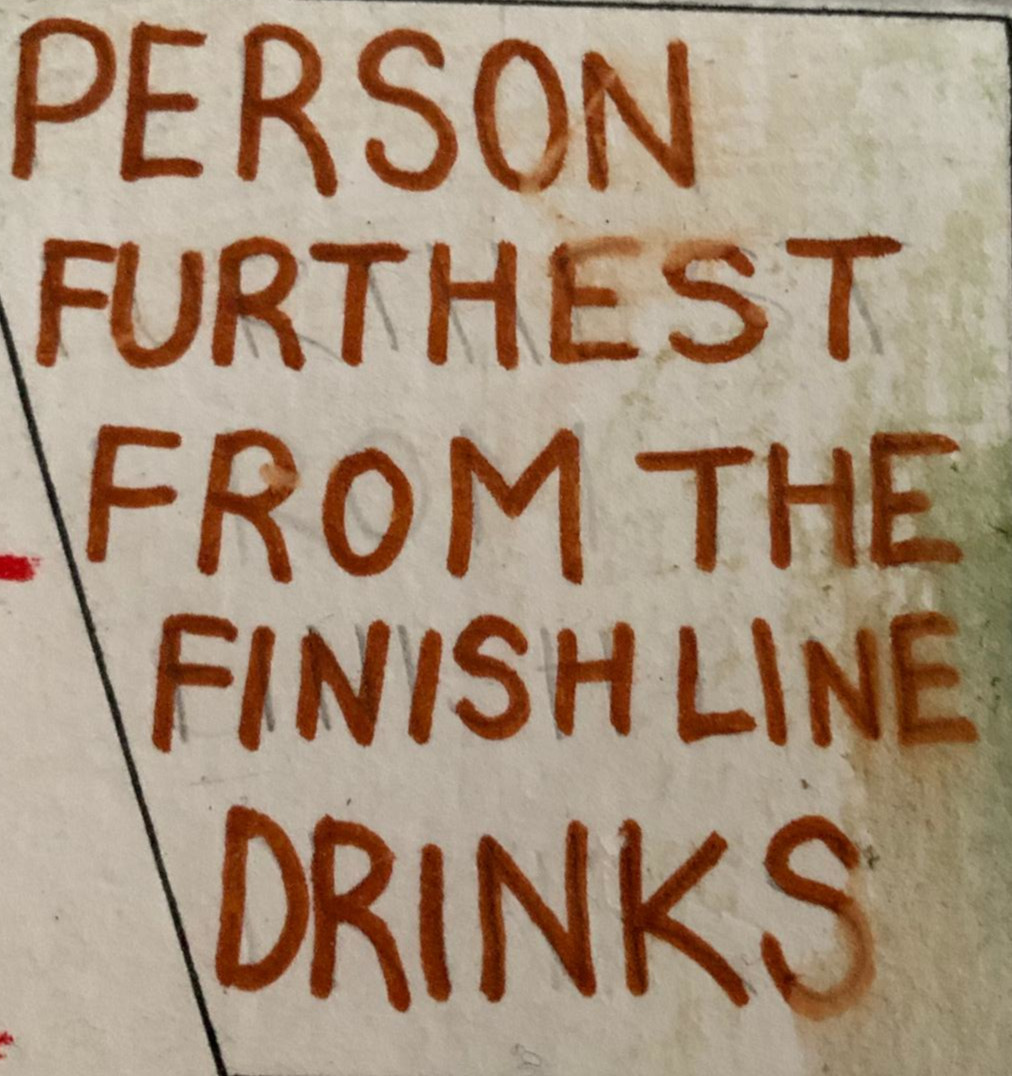 PERSON
FURTHEST
FROM THE
FINISH LINE
DRINKS